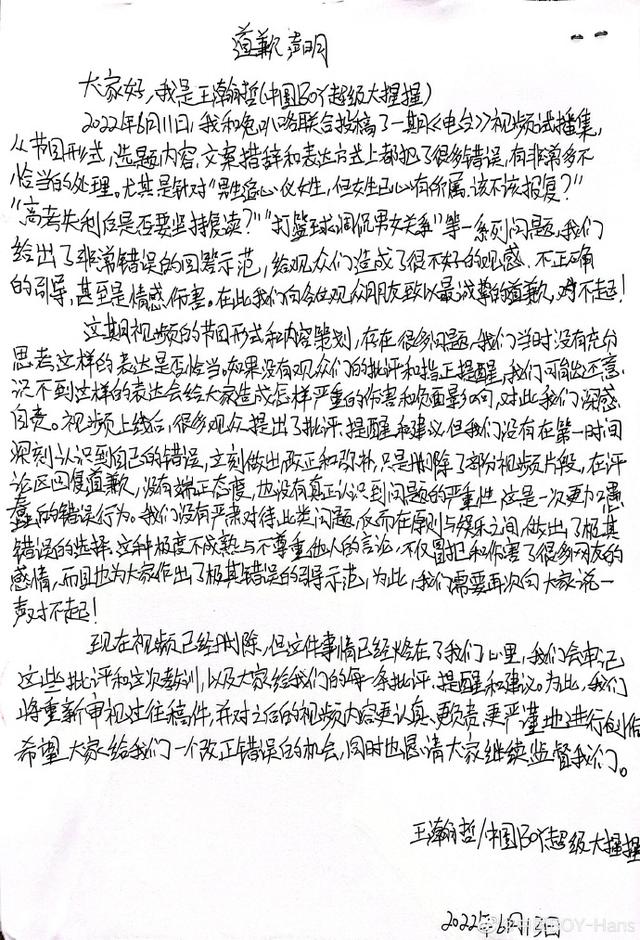 道歉声明
大家好，我是王瀚哲(中国BOY超级大猩猩)
2022年6月11日，我和兔叭咯联合投稿了一期《电台》视频试播集，
从节目形式，选题内容，文案措辞和表达方式上都犯了很多错误，有非常多不
恰当的处理。尤其是针对“男生追心仪女生，但女生已心有所属，该不该报复？”
“高考失利后是否要坚持复读？”“打篮球调侃男女关系”等一系列问题，我们
给出了非常错误的回答示范，给观众们造成了很不好的观感、不正确
的引导，甚至是情感伤害。在此我们向各位观众朋友致以最诚挚的道歉，对不起！
这期视频的节目形式和内容策划，存在很多问题，我们当时没有充分
思考这样的表达是否恰当，如果没有观众们的批评和指正提醒，我们可能还意
识不到这样的表达会给大家造成怎样严重的伤害和负面影响，对此我们深感
自责。视频上线后，很多观众提出了批评、提醒和建议，但我们没有在第一时间
深刻认识到自己的错误，立刻做出改正和弥补，只是删除了部分视频片段，在评
论区回复道歉，没有端正态度，也没有真正认识到问题的严重性，这是一次更加愚
蠢的错误行为。我们没有严肃对待此类问题，反而在原则与娱乐之间，做出了极其
错误的选择，这种极度不成熟与不尊重他人的言论，不仅冒犯和伤害了很多网友的
感情，而且也为大家作出了极其错误的引导示范，为此，我们需要再次向大家说一
声对不起！
现在视频已经删除，但这件事情已经烙在了我们心里，我们会牢记
这些批评和这次教训，以及大家给我们的每一条批评、提醒和建议。为此，我们
将重新审视过往稿件，并对之后的视频内容更认真、更负责、更严谨地进行创作
希望大家给我们一个改正错误的机会，同时也恳请大家继续监督我们。
王瀚哲/中国BOY超级大猩猩
2022年6月13日